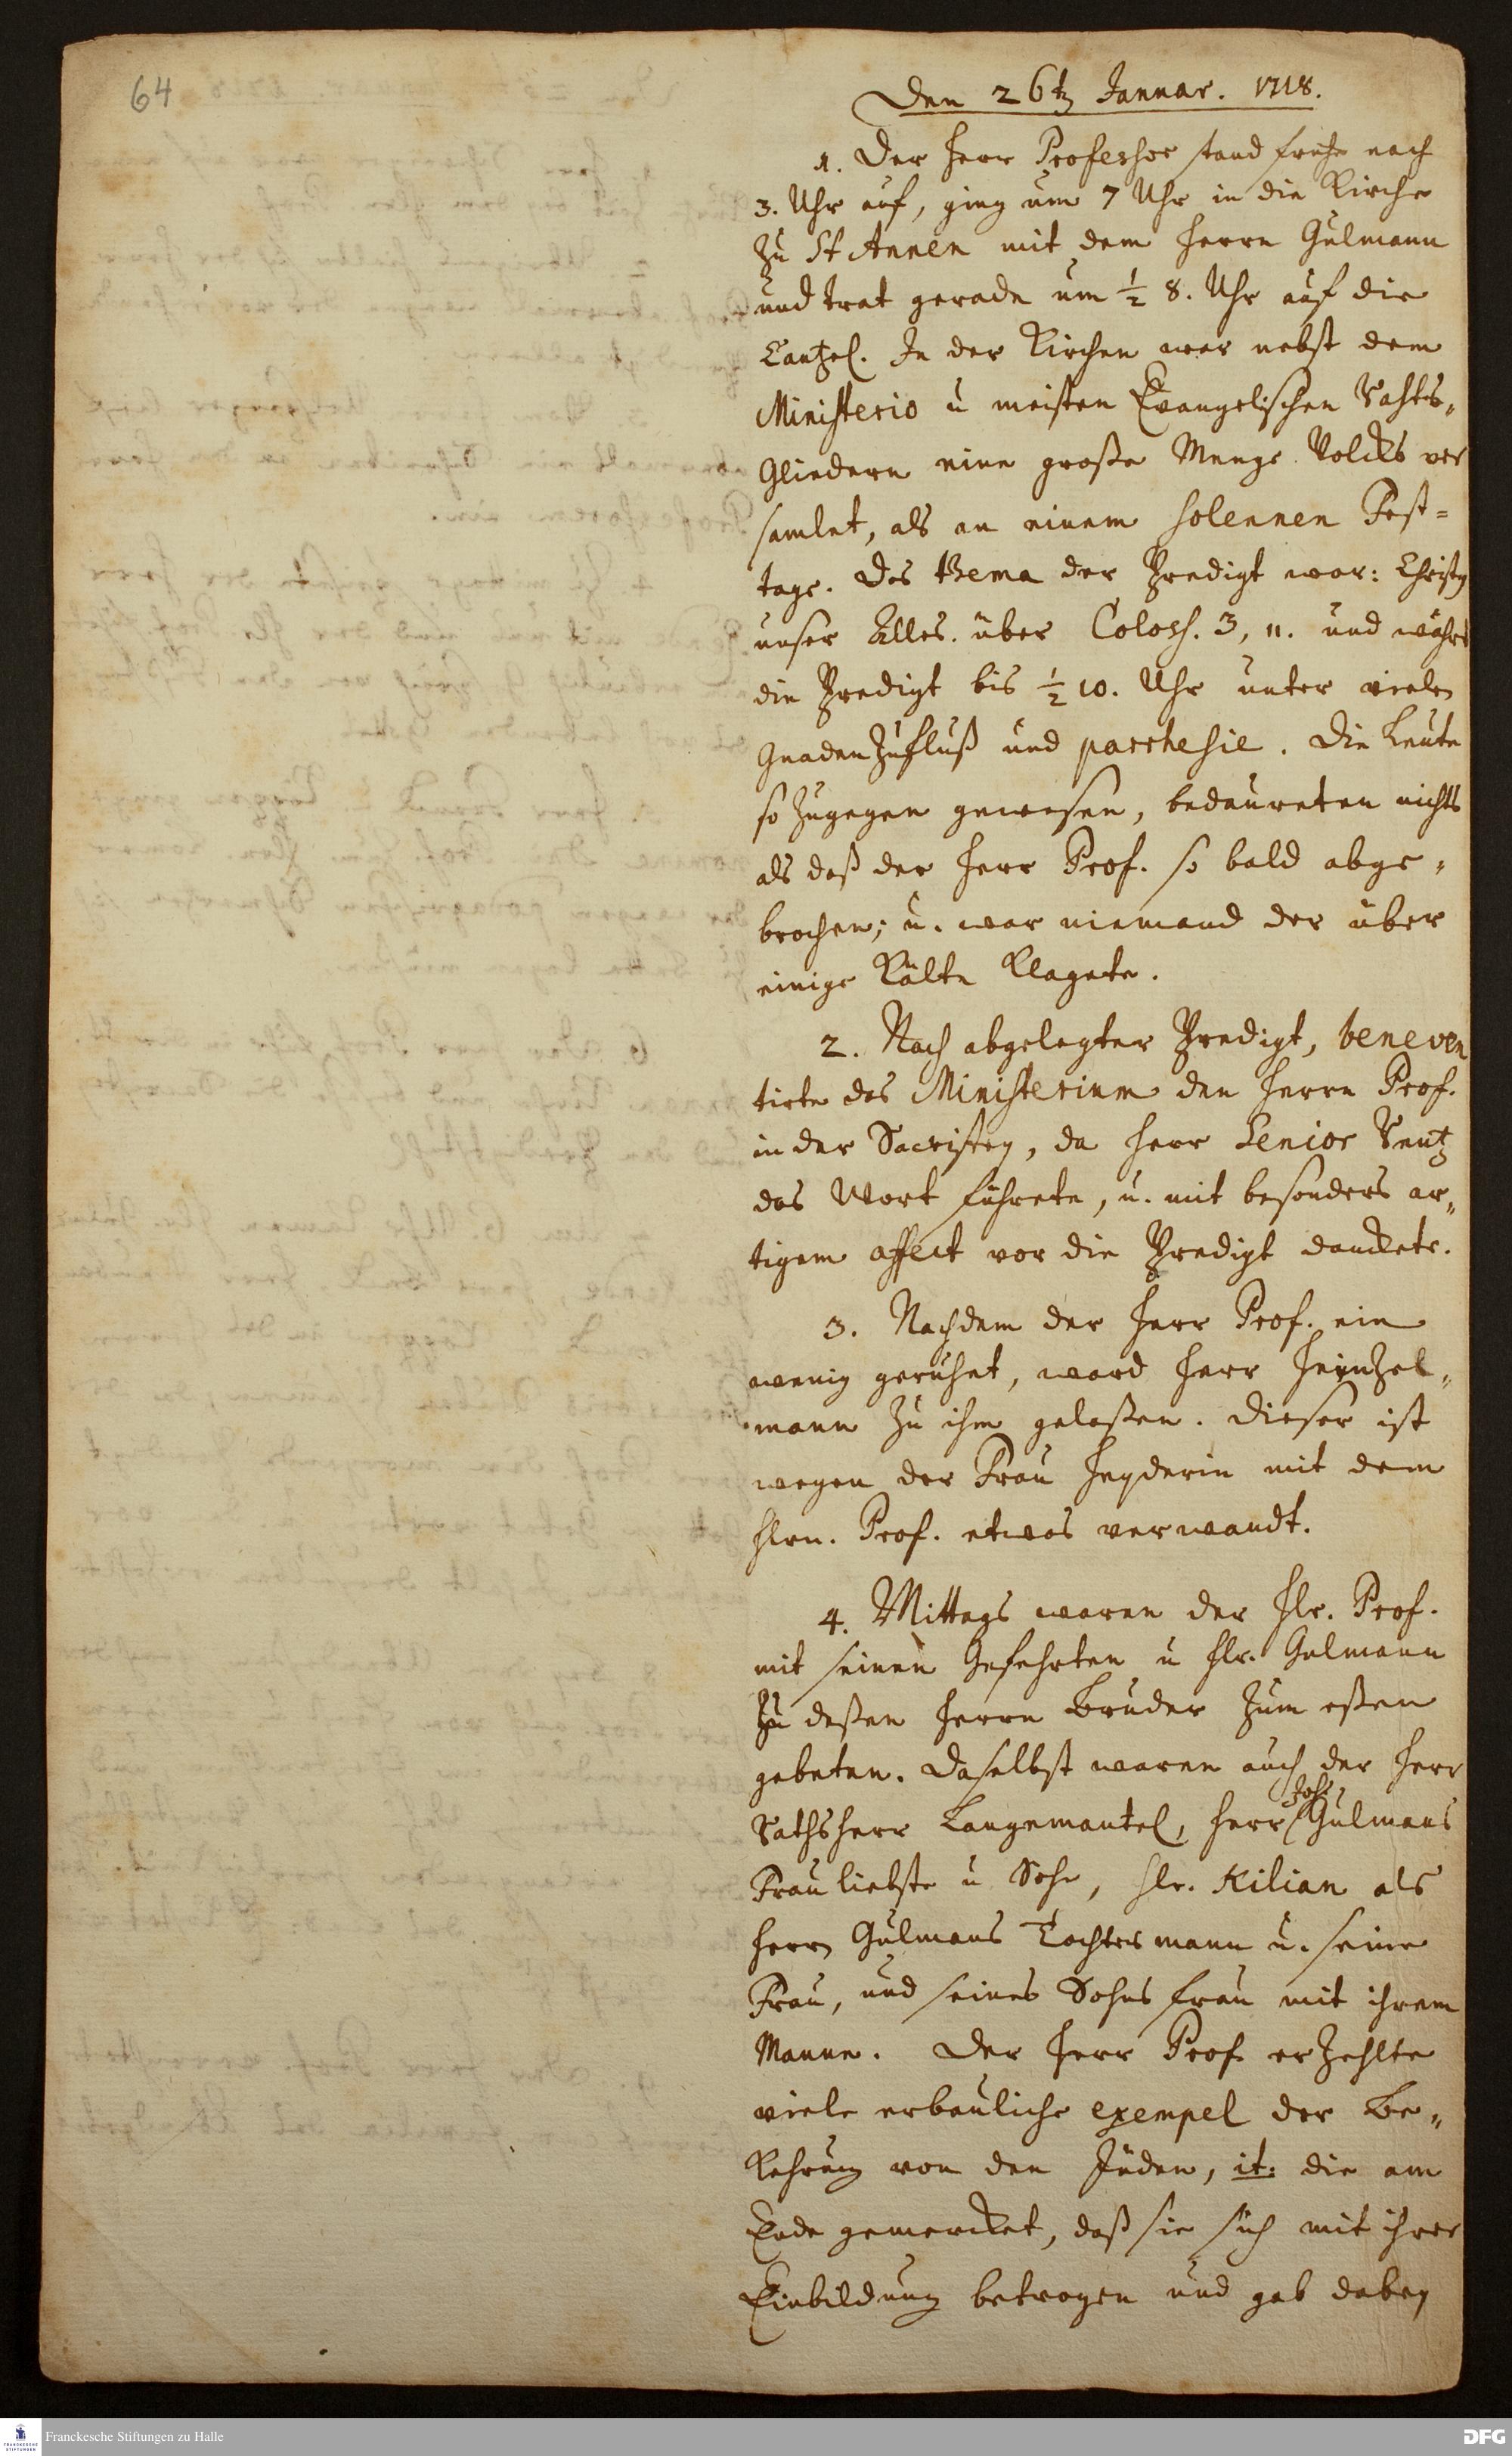 64
Den 26tz Januar. 1718.
1. Der Herr Professor stand frühe nach
3. Uhr auf, ging um 7 Uhr in die Kirche
zu St Annen mit dem Herrn Gulmann
und trat gerade um ½ 8. Uhr auf die
Cantzel. In der Kirchen war nebst dem
Ministerio u meisten Evangelischen Rahts-
Gliedern eine große Menge Volcks ver
samlet, als an einem solennen Fest=
tage. Das thema der Predigt war: Christus
unser Alles. über Coloss. 3, 11. und währt
die Predigt bis ½ 10. Uhr unter vielen
Gnaden Zufluß und parrhesie. Die Leute
so zugegen gewesen, bedaureten nichts
als daß der Herr Prof. so bald abge-
brochen; u. war niemand der über
einige Kälte klagete.
2. Nach abgelegter Predigt, beneven
tirte das Ministerium den Herrn Prof.
in der Sacristey, da Herr Senior Rentz
das Wort führete, u. mit besonders ar-
tigem affect vor die Predigt danckete.
3. Nachdem der Herr Prof. ein
wenig geruhet, ward Herr Heinzel-
mann zu ihm gelaßen. Dieser ist
wegen der Frau Heyderin mit dem
Hrn. Prof. etwas verwandt.
4. Mittags waren der Hr. Prof.
mit seinen Gefehrten u Hr. Gulmann
zu deßen Herrn Bruder zum eßen
gebeten. Daselbst waren auch der Herr
Rathsherr Langemantel, Herr Joh. Gulmans
Frau liebste u Sohn, Hr. Kilian als
Herrn Gulmans Tochtermann u. seine
Frau, und seines Sohns Frau mit ihrem
Manne. Der Herr Prof. erzehlte
viele erbauliche exempel der Be-
kehrung von den Juden, it: die am
Ende gemercket, daß sie sich mit ihrer
Einbildung betrogen und gab dabey
Franckesche Stiftungen zu Halle
DFG